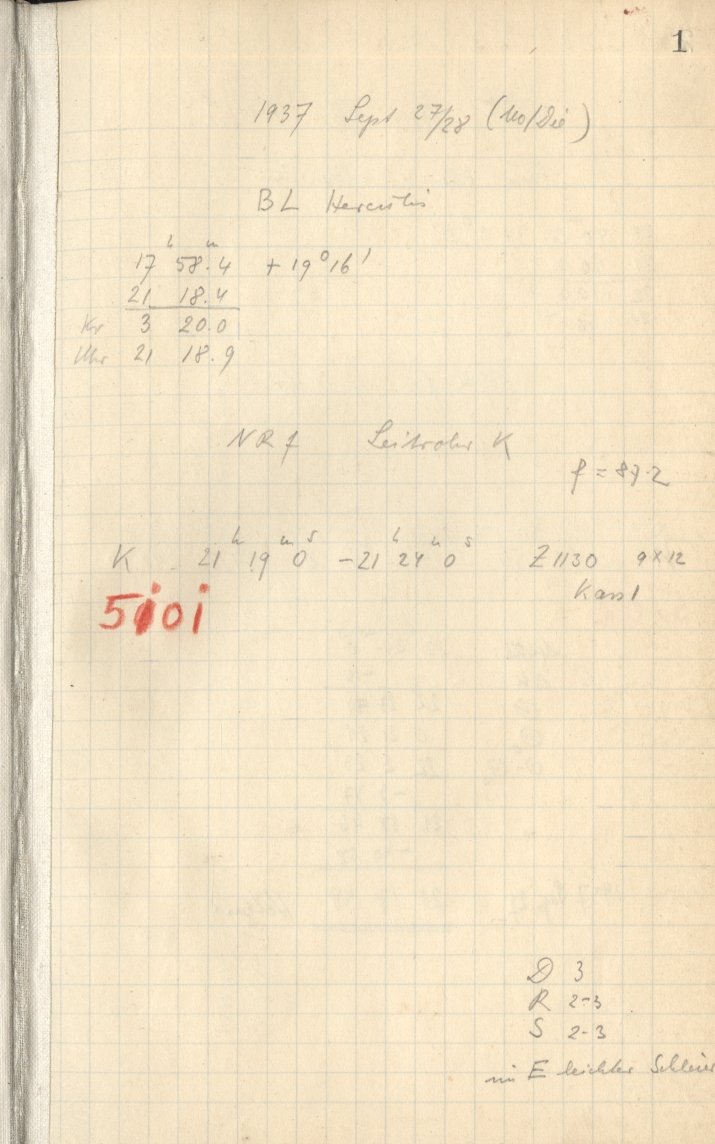 1
1937 Sept 27/28 (Mo/Die)
BL Herculis
17 h 58.4 m + 19° 16'
21 18.4
Kr 3 20.0
Uhr 21 18.9
NR 7 Leitrohr K
f = 87.2
K 21 h 19 m 0 s - 21 h 24 m 0 s Z 1130 9 x 12
Kass 1
5101
D 3
R 2-3
S 2-3
im E leichter Schleier